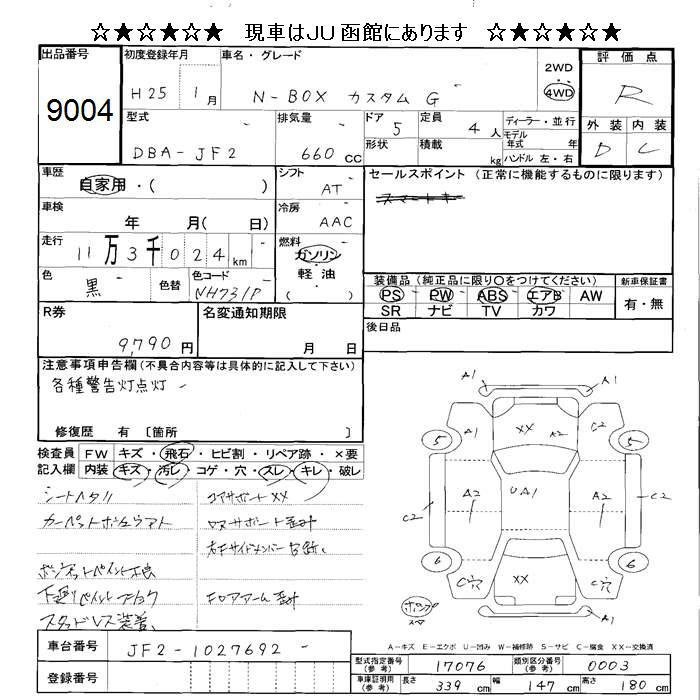 ☆★☆★☆ 現車はJU函館にあります ☆★☆★☆
出品番号 初度登録年月 車名・グレード 評価点
9004 H25 1月 N-BOX カスタム G 2WD 4WD R
型式 排気量 ドア 定員 ディーラー・並行 外装 内装
DBA-JF2 660 CC 5 4 人 モデル 年式 年
形状 積載 kg ハンドル 左・右 D C
車歴 シフト セールスポイント (正常に機能するものに限ります)
自家用・( ) AT スマートキー
車検 冷房
年 月( 日) AAC
走行 燃料
11万3千024km ガソリン
色 色替 色コード 軽油
黒 NH731P ( )
装備品 (純正品に限り○をつけてください) 新車保証書
PS PW ABS エアB AW 有・無
SR ナビ TV カワ
R券 名変通知期限 後日品
9,790円 月 日
注意事項申告欄 (不具合内容等は具体的に記入して下さい)
各種警告灯点灯
修復歴 有 〔箇所 〕
検査員 FW キズ・飛石・ヒビ割・リペア跡・×要
記入欄 内装 キズ・汚レ・コゲ・穴・スレ・キレ・破レ
シートヘタリ コアサポートXX
ボンネットペイント不良
スタッドレス装着
A1 A1
A1 XX A2 C2
5 5
C2 A2 UA1 A2 C2
6 6
C穴 XX C穴
A1
A-キズ E-エクボ U-凹み W-補修跡 S-サビ C-腐食 XX-交換済
車台番号 JF2-1027692
登録番号
型式指定番号 (参考) 17076 類別区分番号 (参考) 0003
車庫証明用 (参考) 長さ 339 cm 幅 147 cm 高さ 180 cm